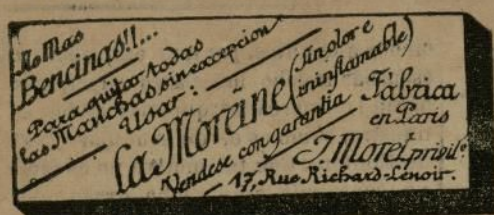 No Mas
Bencinas!!...
Para quitar todas
las Manchas sin excepcion
Usar:
La Moreïne (sin olor e
ininflamable)
Vendese con garantia
Fábrica
en Paris
J. Moret, privil.º
17, Rue Richard-Lenoir.